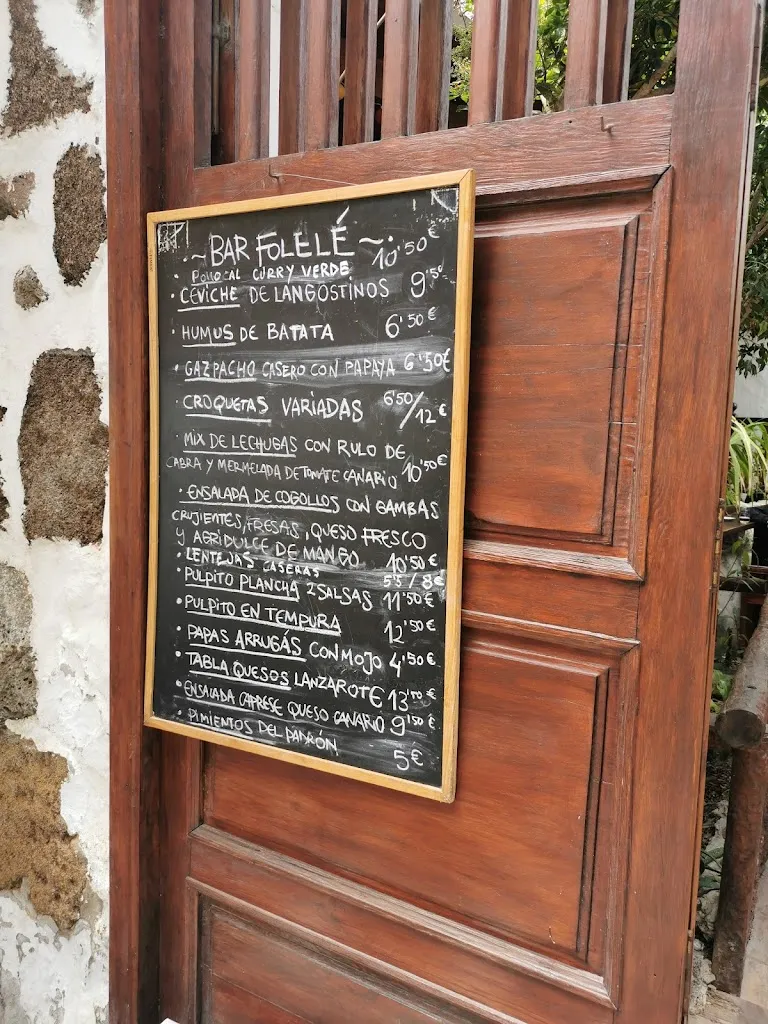 ~ BAR FOLELÉ ~
• POLLO AL CURRY VERDE 10'50€
• CEVICHE DE LANGOSTINOS 9'50
• HUMUS DE BATATA 6'50€
• GAZPACHO CASERO CON PAPAYA 6'50€
• CROQUETAS VARIADAS 6'50/12€
• MIX DE LECHUGAS CON RULO DE
CABRA Y MERMELADA DE TOMATE CANARIO 10'50€
• ENSALADA DE COGOLLOS CON GAMBAS
CRUJIENTES, FRESAS, QUESO FRESCO
Y AGRIDULCE DE MANGO 10'50€
• LENTEJAS CASERAS 5'5/8€
• PULPITO PLANCHA 2 SALSAS 11'50€
• PULPITO EN TEMPURA 12'50€
• PAPAS ARRUGÁS CON MOJO 4'50€
• TABLA QUESOS LANZAROTE 13'50€
• ENSALADA CAPRESE QUESO CANARIO 9'50€
• PIMIENTOS DEL PADRÓN 5€